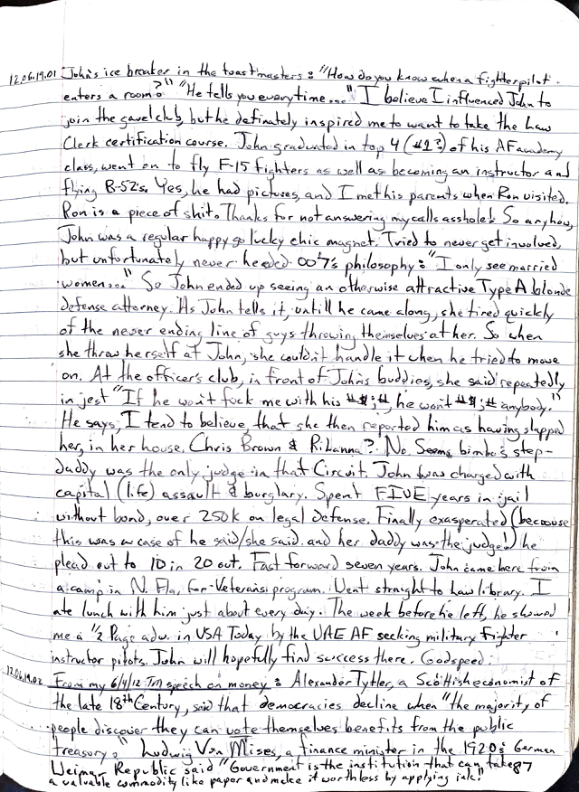 12.06.19.01 John's ice breaker in the toastmasters: "How do you know when a fighter pilot
enters a room?" "He tells you everytime..." I believe I influenced John to
join the gavel club, but he definately inspired me to want to take the Law
Clerk certification course. John graduated in top 4 (#2?) of his AF academy
class, went on to fly F-15 fighters as well as becoming an instructor and
flying B-52s. Yes, he had pictures, and I met his parents when Ron visited.
Ron is a piece of shit. Thanks for not answering my calls asshole! So anyhow,
John was a regular happy go lucky chic magnet. Tried to never get involved,
but unfortunately never heeded 007's philosophy: "I only see married
women..." So John ended up seeing an otherwise attractive Type A blonde
defense attorney. As John tells it, untill he came along, she tired quickly
of the never ending line of guys throwing themselves at her. So when
she threw herself at John, she couldn't handle it when he tried to move
on. At the officer's club, in front of John's buddies, she said repeatedly
in jest "If he won't fuck me with his ##;#, he wont ##;# anybody."
He says, I tend to believe, that she then reported him as having slapped
her, in her house. Chris Brown & Rihanna? No. Seems bimbo's step-
daddy was the only judge in that Circuit. John was charged with
capital (life) assault & burglary. Spent FIVE years in jail
without bond, over 250k on legal defense. Finally exasperated (because
this was a case of he said/she said and her daddy was the judge!) he
plead out to 10 in 20 out. Fast forward seven years. John came here from
a camp in N. Fla, for Veterans program. Went straight to Law library. I
ate lunch with him just about every day. The week before he left, he showed
me a 1/2 Page adv. in USA Today by the UAE AF seeking military Fighter
instructor pilots. John will hopefully find success there. Godspeed.
12.06.19.02 From my 6/4/12 TM speech on money: Alexander Tytler, a Scottish economist of
the late 18th Century, said that democracies decline when "the majority of
people discover they can vote themselves benefits from the public
treasury." Ludwig Von Mises, a finance minister in the 1920s German
Weimar Republic said "Government is the institution that can take 87
a valuable commodity like paper and make it worthless by applying ink."